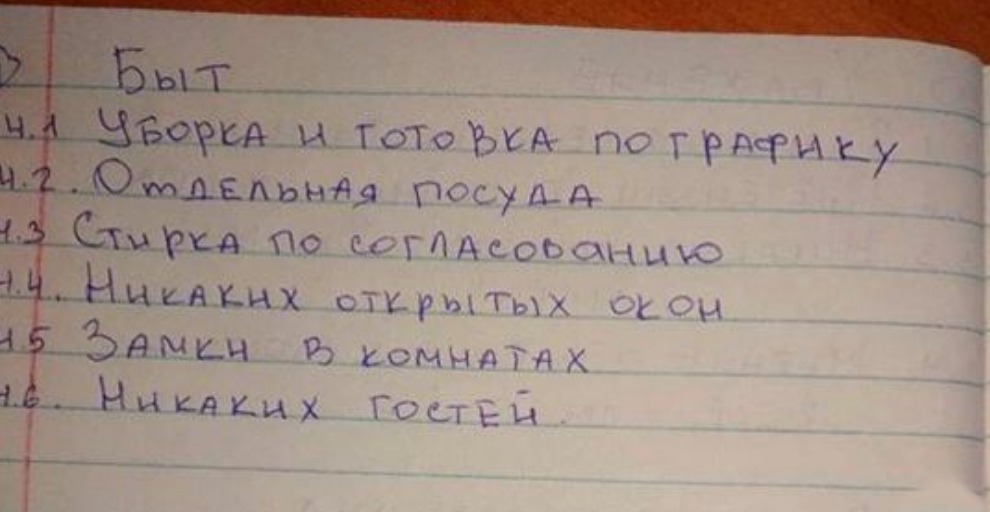 Быт
4.1 Уборка и готовка по графику
4.2. Отдельная посуда
4.3 Стирка по согласованию
4.4. Никаких открытых окон
4.5 Замки в комнатах
4.6. Никаких гостей.